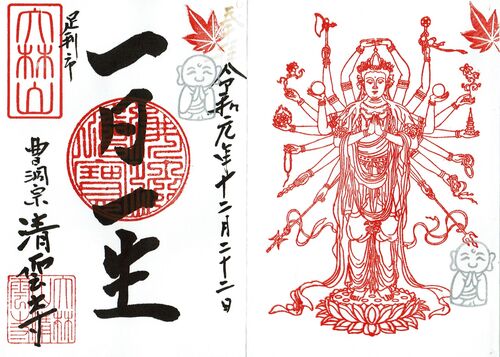 令和元年十二月二十二日
一日一生
足利市
大林山
曹洞宗 清雲寺